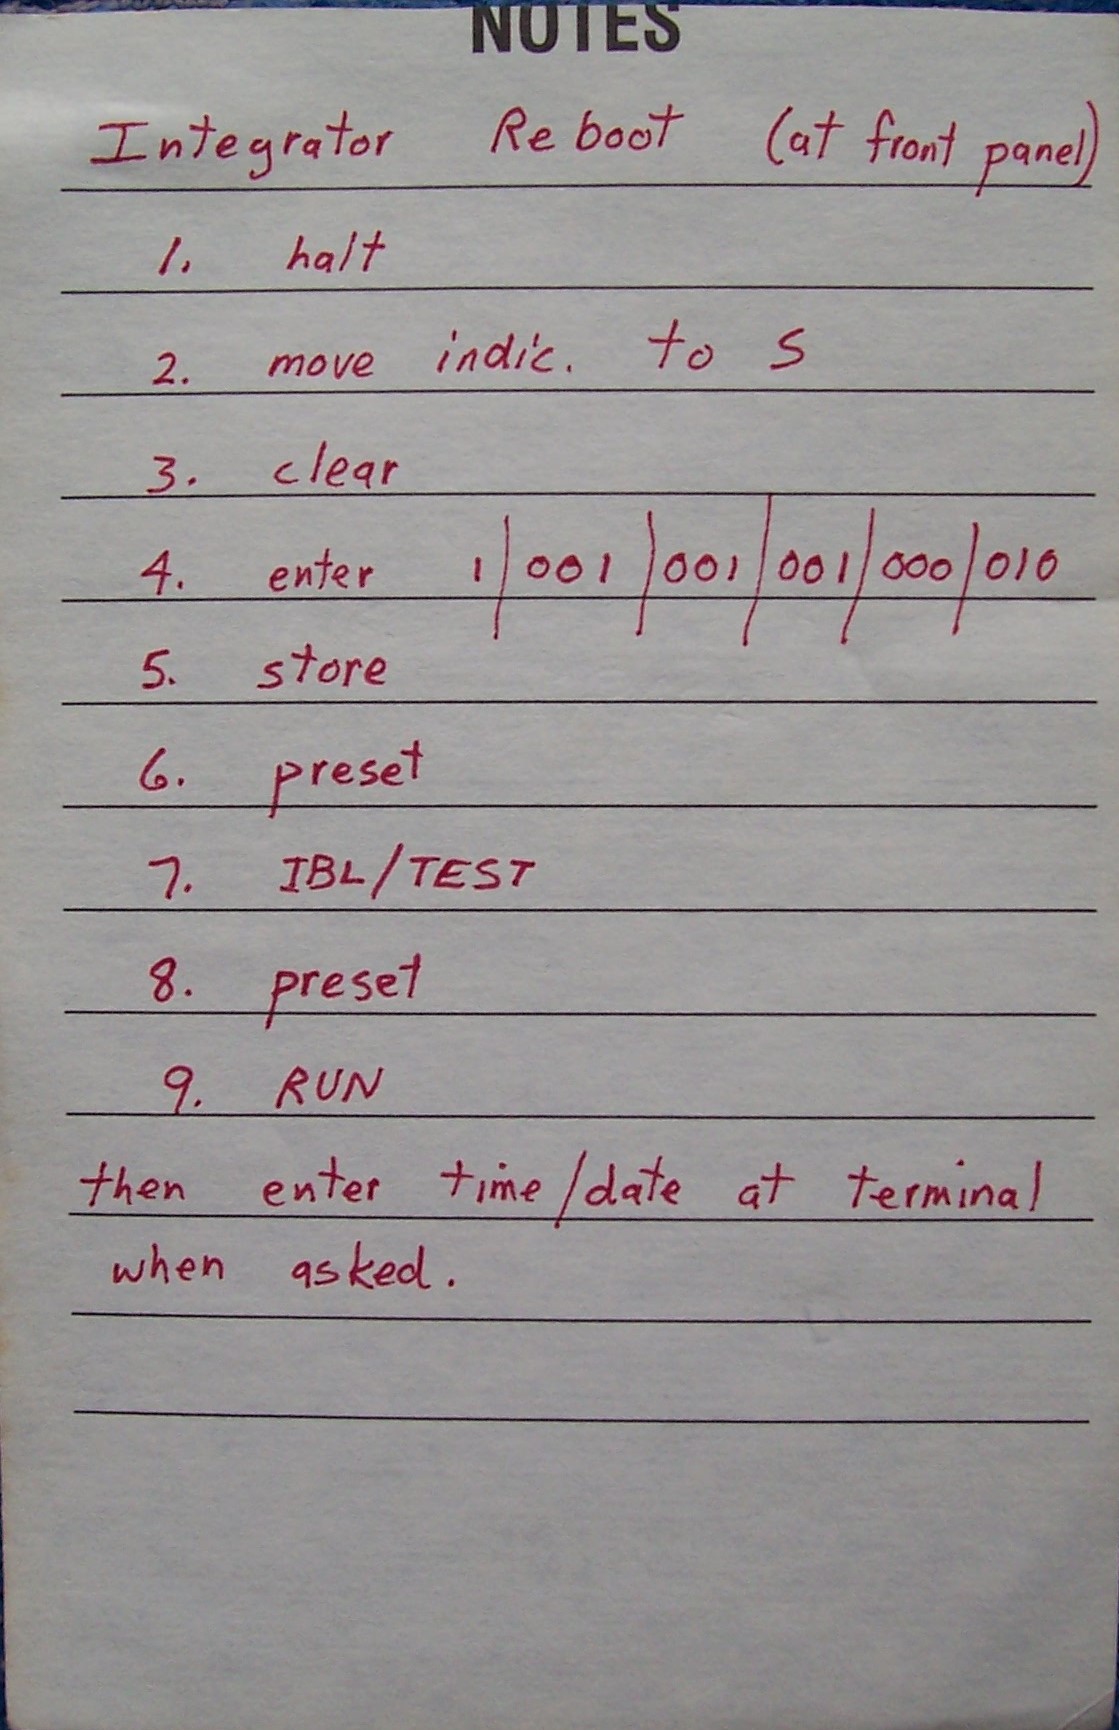 NOTES
Integrator Reboot (at front panel)
1. halt
2. move indic. to S
3. clear
4. enter 1/001/001/001/000/010
5. store
6. preset
7. IBL/TEST
8. preset
9. RUN
then enter time/date at terminal
when asked.